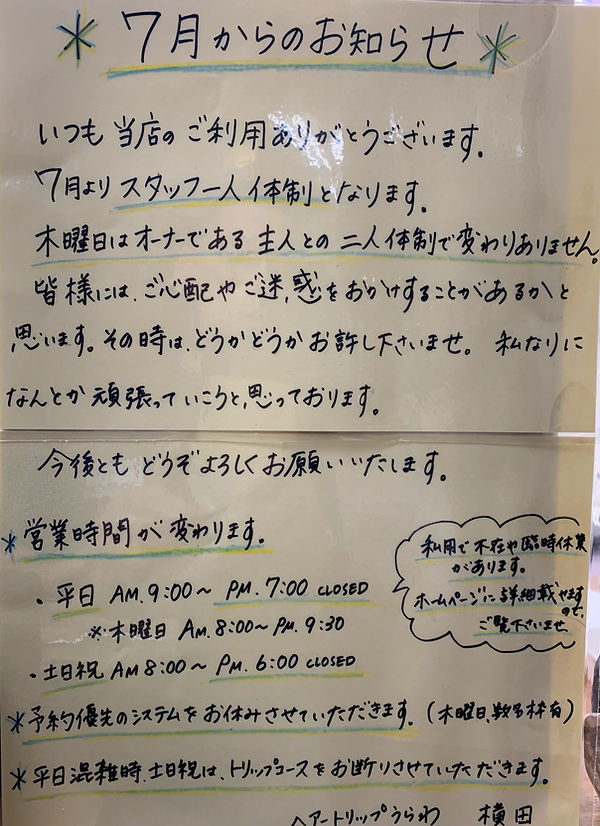 * 7月からのお知らせ *
いつも当店のご利用ありがとうございます。
7月よりスタッフ一人体制となります。
木曜日はオーナーである主人との二人体制で変わりありません。
皆様には、ご心配やご迷惑をおかけすることがあるかと
思います。その時は、どうかどうかお許し下さいませ。私なりに
なんとか頑張っていこうと思っております。
今後ともどうぞよろしくお願いいたします。
* 営業時間が変わります。
・平日 AM.9:00〜PM.7:00 CLOSED
※木曜日 AM.8:00〜PM.9:30
・土日祝 AM8:00〜PM.6:00 CLOSED
私用で不在や臨時休業
があります。
ホームページに詳細載せます
ので、
ご覧下さいませ
* 予約優先のシステムをお休みさせていただきます。(木曜日、数名枠有)
* 平日混雑時、土日祝は、トリップコースをお断りさせていただきます。
ヘアートリップうらわ 横田